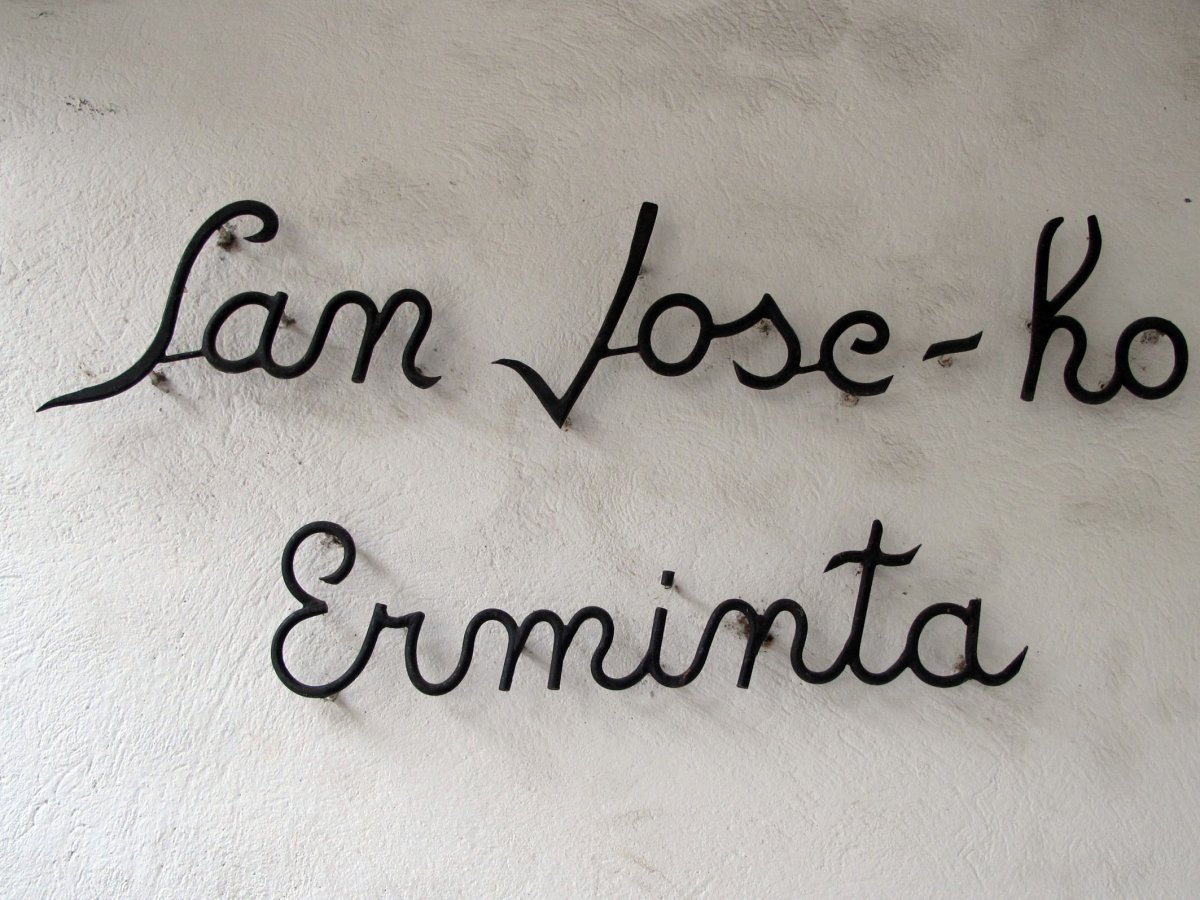 San Jose-ko
Erminta